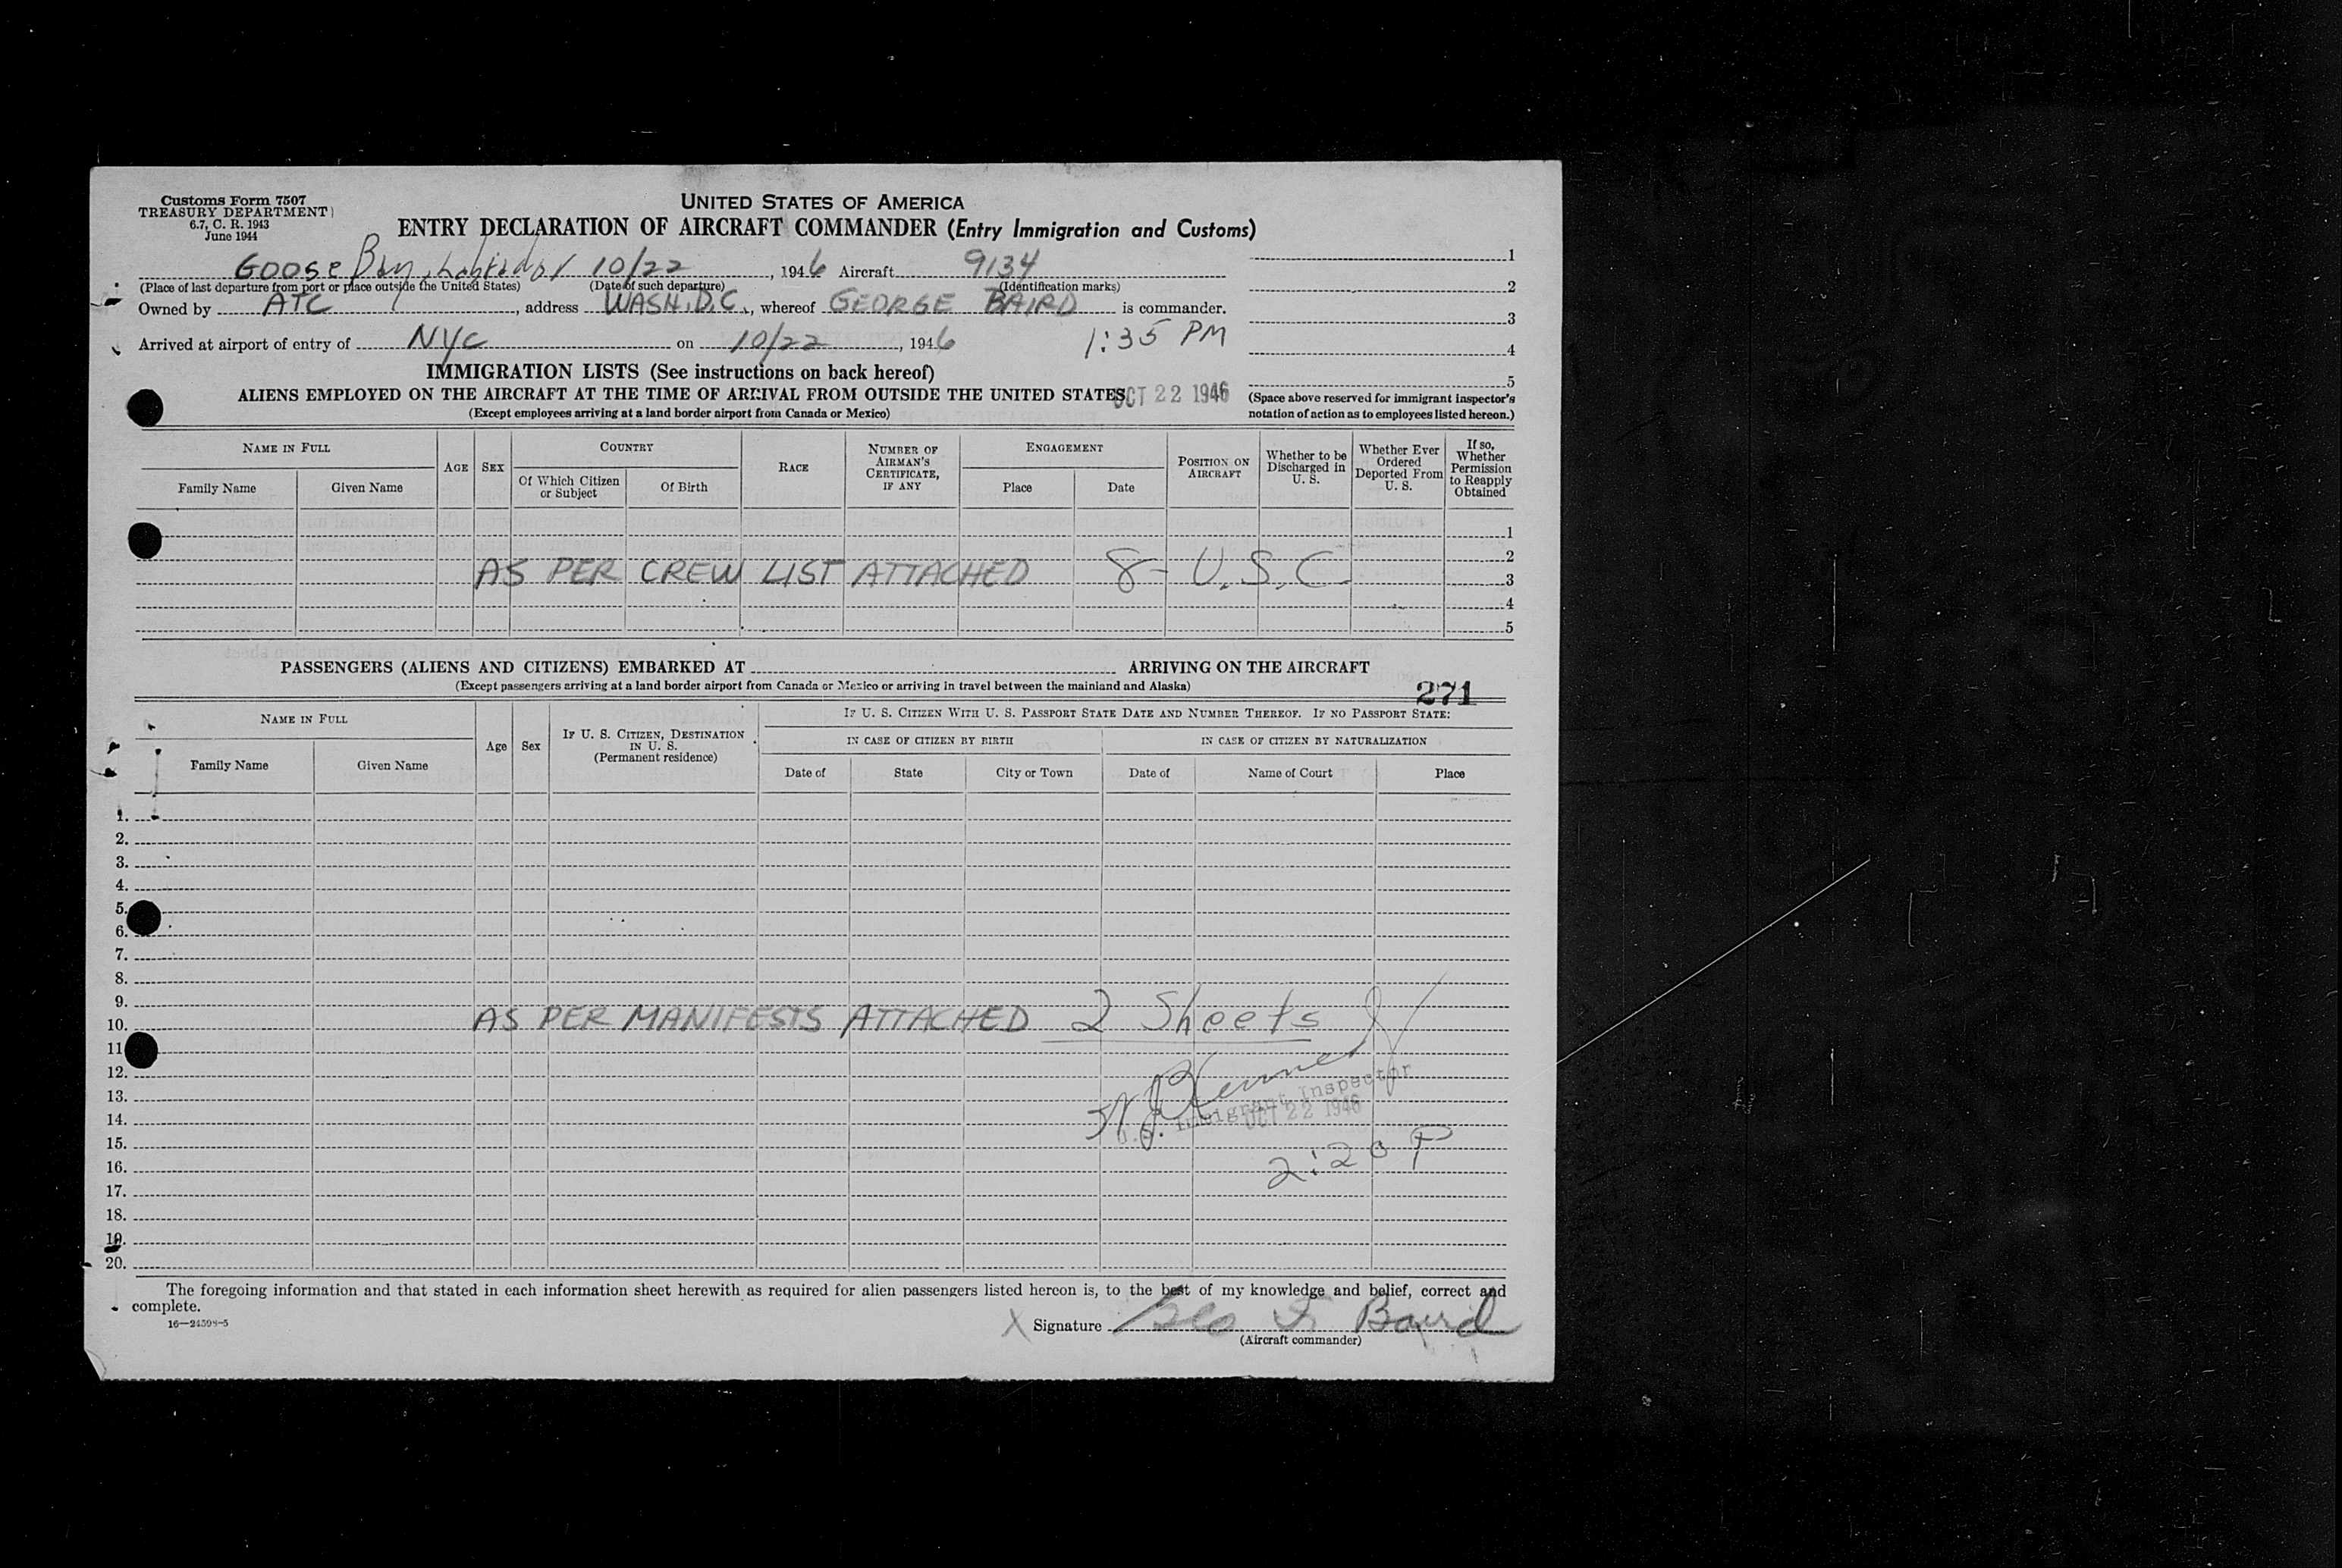 Customs Form 7507
TREASURY DEPARTMENT
6.7, C. R. 1943
June 1944
UNITED STATES OF AMERICA
ENTRY DECLARATION OF AIRCRAFT COMMANDER (Entry Immigration and Customs)
Goose Bay, Labrador 10/22, 1946 Aircraft 9134
(Place of last departure from port or place outside the United States) (Date of such departure) (Identification marks)
Owned by ATC, address WASH. D.C., whereof GEORGE BAIRD is commander.
Arrived at airport of entry of NYC on 10/22, 1946 1:35 PM
1
2
3
4
5
(Space above reserved for immigrant inspector's notation of action as to employees listed hereon.)
IMMIGRATION LISTS (See instructions on back hereof)
ALIENS EMPLOYED ON THE AIRCRAFT AT THE TIME OF ARRIVAL FROM OUTSIDE THE UNITED STATES OCT 22 1946
(Except employees arriving at a land border airport from Canada or Mexico)
NAME IN FULL
Family Name
Given Name
AGE
SEX
COUNTRY
Of Which Citizen or Subject
Of Birth
RACE
NUMBER OF AIRMAN'S CERTIFICATE, IF ANY
ENGAGEMENT
Place
Date
POSITION ON AIRCRAFT
Whether to be Discharged in U. S.
Whether Ever Ordered Deported From U. S.
If so, Whether Permission to Reapply Obtained
1
2
AS PER CREW LIST ATTACHED 8 - U.S.C. 3
4
5
PASSENGERS (ALIENS AND CITIZENS) EMBARKED AT ARRIVING ON THE AIRCRAFT
(Except passengers arriving at a land border airport from Canada or Mexico or arriving in travel between the mainland and Alaska)
271
NAME IN FULL
Family Name
Given Name
Age
Sex
IF U. S. CITIZEN, DESTINATION IN U. S. (Permanent residence)
IF U. S. CITIZEN WITH U. S. PASSPORT STATE DATE AND NUMBER THEREOF. IF NO PASSPORT STATE:
IN CASE OF CITIZEN BY BIRTH
IN CASE OF CITIZEN BY NATURALIZATION
Date of
State
City or Town
Date of
Name of Court
Place
1.
2.
3.
4.
5.
6.
7.
8.
9.
10. AS PER MANIFESTS ATTACHED 2 Sheets
11
12.
13.
14. U.S. Immigrant Inspector
OCT 22 1946
15.
16. 2:20 P
17.
18.
19.
20.
The foregoing information and that stated in each information sheet herewith as required for alien passengers listed hereon is, to the best of my knowledge and belief, correct and
complete.
16—24598-5
X Signature Geo F. Baird
(Aircraft commander)